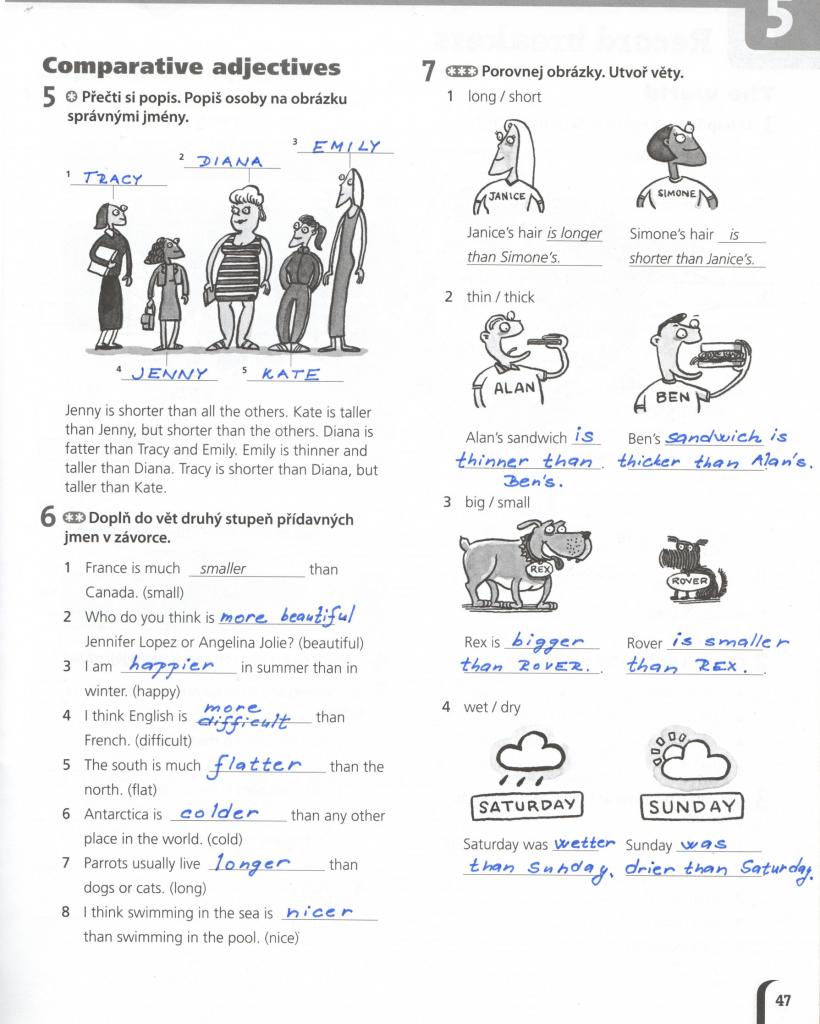 5
Comparative adjectives
5 Přečti si popis. Popiš osoby na obrázku
správnými jmény.
1 TRACY
2 DIANA
3 EMILY
4 JENNY
5 KATE
Jenny is shorter than all the others. Kate is taller
than Jenny, but shorter than the others. Diana is
fatter than Tracy and Emily. Emily is thinner and
taller than Diana. Tracy is shorter than Diana, but
taller than Kate.
6 Doplň do vět druhý stupeň přídavných
jmen v závorce.
1 France is much smaller than
Canada. (small)
2 Who do you think is more beautiful
Jennifer Lopez or Angelina Jolie? (beautiful)
3 I am happier in summer than in
winter. (happy)
4 I think English is more difficult than
French. (difficult)
5 The south is much flatter than the
north. (flat)
6 Antarctica is colder than any other
place in the world. (cold)
7 Parrots usually live longer than
dogs or cats. (long)
8 I think swimming in the sea is nicer
than swimming in the pool. (nice)
7 Porovnej obrázky. Utvoř věty.
1 long / short
JANICE
SIMONE
Janice's hair is longer
than Simone's.
Simone's hair is
shorter than Janice's.
2 thin / thick
ALAN
BEN
Alan's sandwich is
thinner than.
Ben's.
Ben's sandwich is
thicker than Alan's.
3 big / small
REX
ROVER
Rex is bigger
than ROVER.
Rover is smaller
than REX.
4 wet / dry
SATURDAY
SUNDAY
Saturday was wetter
than Sunday.
Sunday was
drier than Saturday.
47